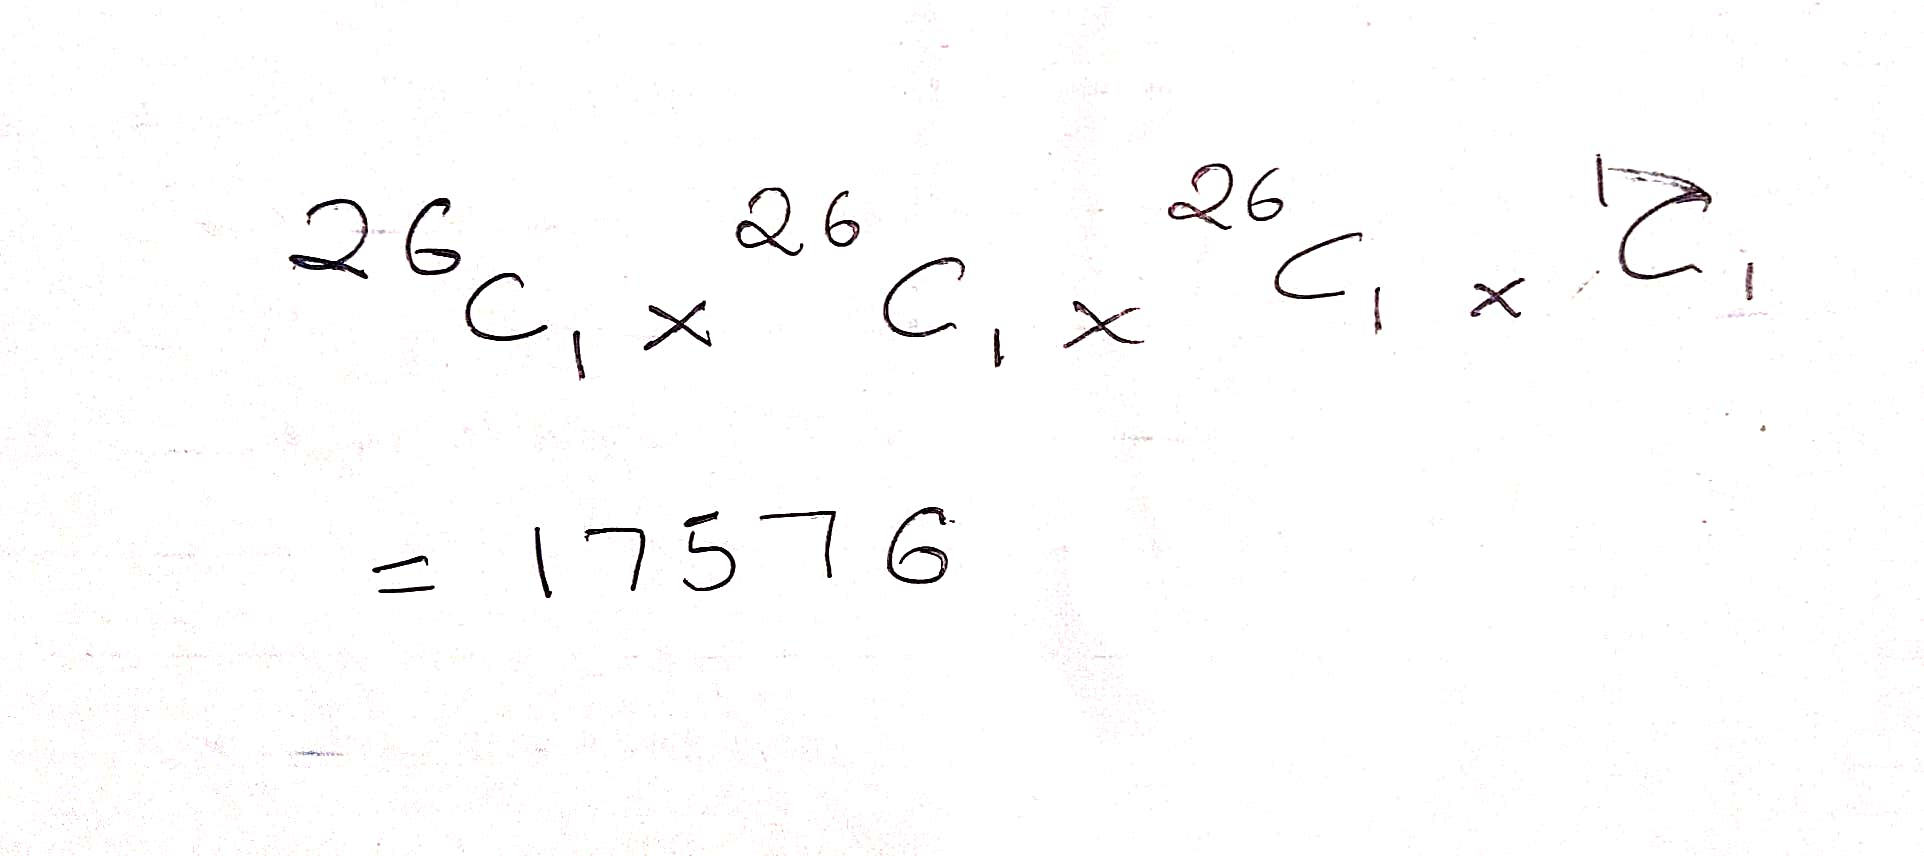 ²⁶C₁ × ²⁶C₁ × ²⁶C₁ × ¹C₁
= 17576